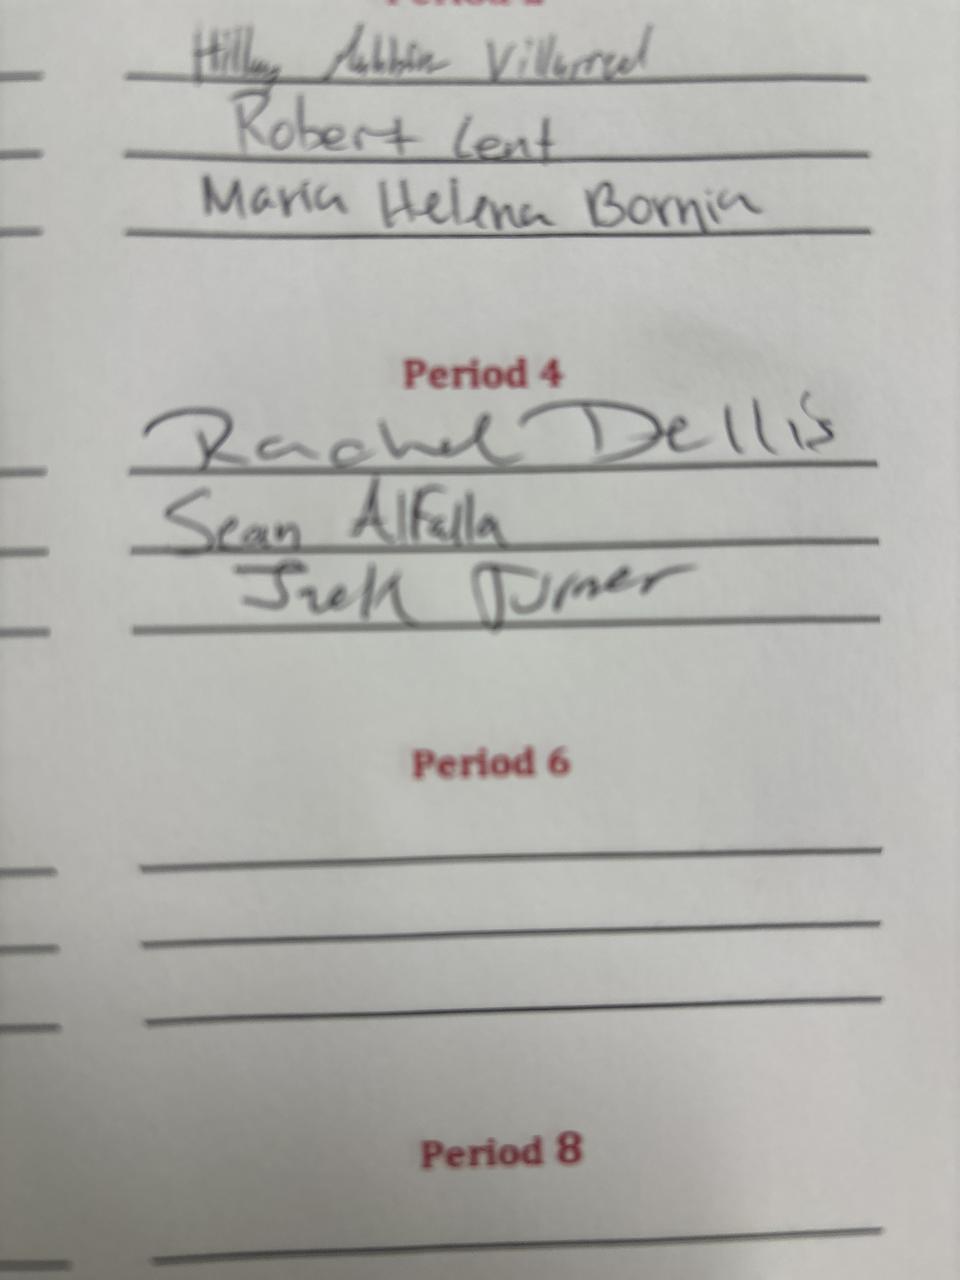 Period 2
Hillary Villarreal
Robert Lent
Maria Helena Bornia
Period 4
Rachel Dellis
Sean AlFalla
Jack Turner
Period 6
Period 8